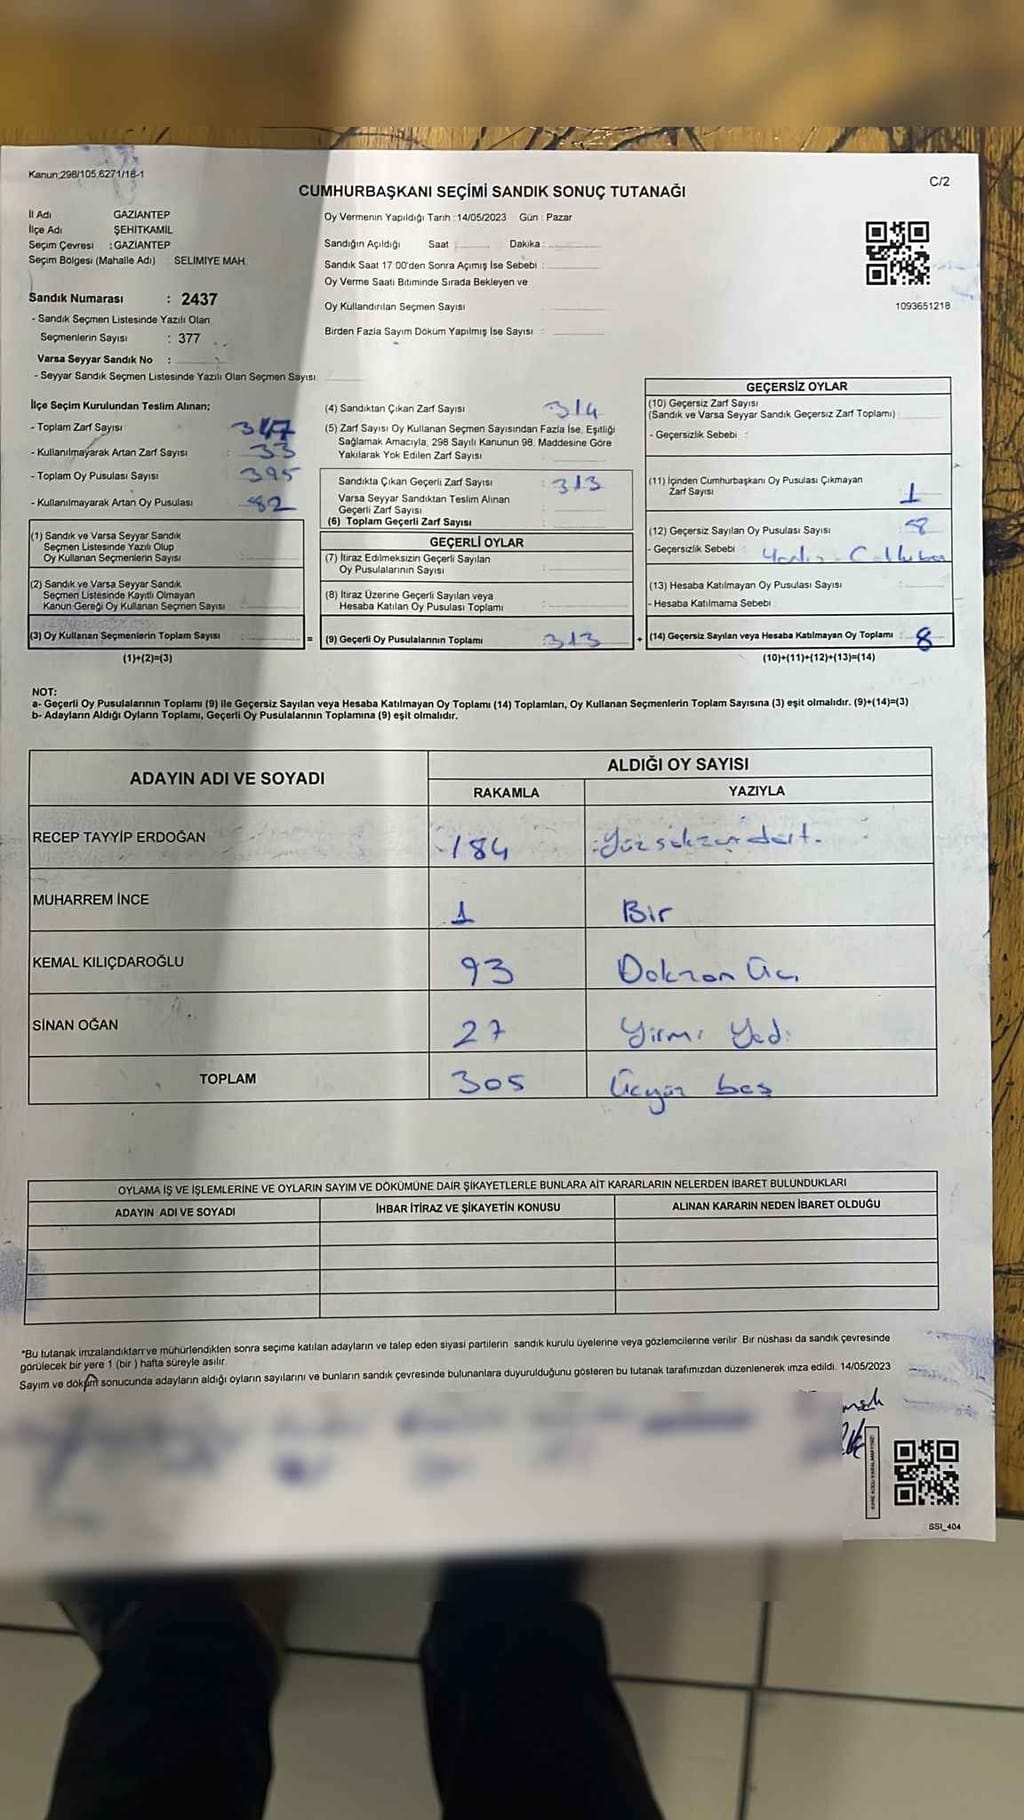 Kanun:298/105,6271/18-1
C/2
CUMHURBAŞKANI SEÇİMİ SANDIK SONUÇ TUTANAĞI
İl Adı GAZİANTEP
İlçe Adı ŞEHİTKAMİL
Seçim Çevresi : GAZİANTEP
Seçim Bölgesi (Mahalle Adı) SELİMİYE MAH.
Sandık Numarası : 2437
- Sandık Seçmen Listesinde Yazılı Olan
Seçmenlerin Sayısı : 377
Varsa Seyyar Sandık No :
- Seyyar Sandık Seçmen Listesinde Yazılı Olan Seçmen Sayısı
Oy Vermenin Yapıldığı Tarih : 14/05/2023 Gün : Pazar
Sandığın Açıldığı Saat Dakika :
Sandık Saat 17:00'den Sonra Açımış İse Sebebi :
Oy Verme Saati Bitiminde Sırada Bekleyen ve
Oy Kullandırılan Seçmen Sayısı
Birden Fazla Sayım Döküm Yapılmış İse Sayısı :
1093651218
İlçe Seçim Kurulundan Teslim Alınan;
- Toplam Zarf Sayısı 347
- Kullanılmayarak Artan Zarf Sayısı : 33
- Toplam Oy Pusulası Sayısı 395
- Kullanılmayarak Artan Oy Pusulası 82
(1) Sandık ve Varsa Seyyar Sandık
Seçmen Listesinde Yazılı Olup
Oy Kullanan Seçmenlerin Sayısı
(2) Sandık ve Varsa Seyyar Sandık
Seçmen Listesinde Kayıtlı Olmayan
Kanun Gereği Oy Kullanan Seçmen Sayısı
(3) Oy Kullanan Seçmenlerin Toplam Sayısı :
(1)+(2)=(3)
(4) Sandıktan Çıkan Zarf Sayısı 314
(5) Zarf Sayısı Oy Kullanan Seçmen Sayısından Fazla İse, Eşitliği
Sağlamak Amacıyla, 298 Sayılı Kanunun 98. Maddesine Göre
Yakılarak Yok Edilen Zarf Sayısı
Sandıkta Çıkan Geçerli Zarf Sayısı : 313
Varsa Seyyar Sandıktan Teslim Alınan
Geçerli Zarf Sayısı
(6) Toplam Geçerli Zarf Sayısı
GEÇERLİ OYLAR
(7) İtiraz Edilmeksizin Geçerli Sayılan
Oy Pusulalarının Sayısı
(8) İtiraz Üzerine Geçerli Sayılan veya
Hesaba Katılan Oy Pusulası Toplamı
= (9) Geçerli Oy Pusulalarının Toplamı 313 +
GEÇERSİZ OYLAR
(10) Geçersiz Zarf Sayısı
(Sandık ve Varsa Seyyar Sandık Geçersiz Zarf Toplamı)
- Geçersizlik Sebebi :
(11) İçinden Cumhurbaşkanı Oy Pusulası Çıkmayan
Zarf Sayısı 1
(12) Geçersiz Sayılan Oy Pusulası Sayısı 8
- Geçersizlik Sebebi :
(13) Hesaba Katılmayan Oy Pusulası Sayısı
- Hesaba Katılmama Sebebi :
(14) Geçersiz Sayılan veya Hesaba Katılmayan Oy Toplamı : 8
(10)+(11)+(12)+(13)=(14)
NOT:
a- Geçerli Oy Pusulalarının Toplamı (9) ile Geçersiz Sayılan veya Hesaba Katılmayan Oy Toplamı (14) Toplamları, Oy Kullanan Seçmenlerin Toplam Sayısına (3) eşit olmalıdır. (9)+(14)=(3)
b- Adayların Aldığı Oyların Toplamı, Geçerli Oy Pusulalarının Toplamına (9) eşit olmalıdır.
ADAYIN ADI VE SOYADI
ALDIĞI OY SAYISI
RAKAMLA YAZIYLA
RECEP TAYYİP ERDOĞAN 184 Yüz seksen dört.
MUHARREM İNCE 1 Bir
KEMAL KILIÇDAROĞLU 93 Doksan Üç
SİNAN OĞAN 27 Yirmi Yedi
TOPLAM 305 Üçyüz beş
OYLAMA İŞ VE İŞLEMLERİNE VE OYLARIN SAYIM VE DÖKÜMÜNE DAİR ŞİKAYETLERLE BUNLARA AİT KARARLARIN NELERDEN İBARET BULUNDUKLARI
ADAYIN ADI VE SOYADI İHBAR İTİRAZ VE ŞİKAYETİN KONUSU ALINAN KARARIN NEDEN İBARET OLDUĞU
*Bu tutanak imzalandıktan ve mühürlendikten sonra seçime katılan adayların ve talep eden siyasi partilerin sandık kurulu üyelerine veya gözlemcilerine verilir. Bir nüshası da sandık çevresinde
görülecek bir yere 1 (bir) hafta süreyle asılır.
Sayım ve döküm sonucunda adayların aldığı oyların sayılarını ve bunların sandık çevresinde bulunanlara duyurulduğunu gösteren bu tutanak tarafımızdan düzenlenerek imza edildi. 14/05/2023
SSI_404